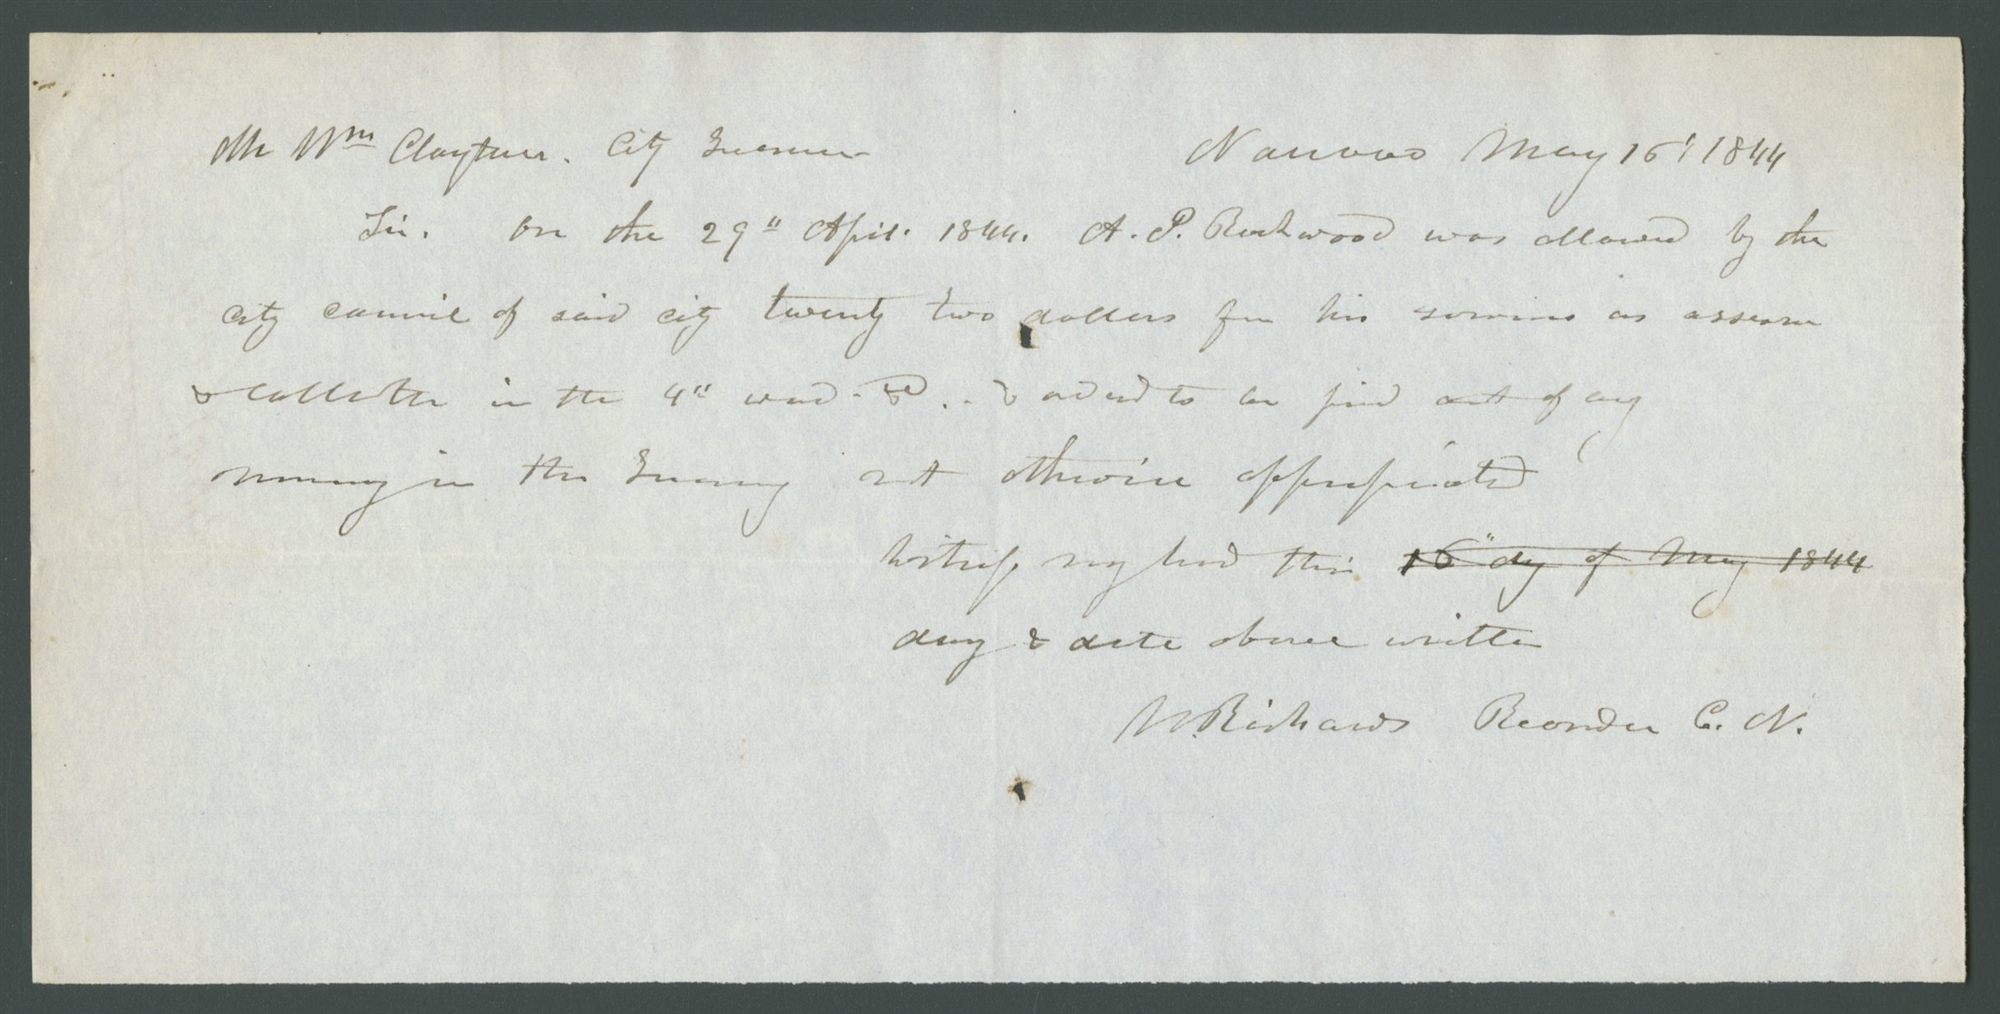 Mr Wm Clayton. City Treasurer Nauvoo May 16, 1844
Sir. On the 29" April. 1844. A. P. Rockwood was allowed by the
city council of said city twenty two dollars for his services as assessor
& collector in the 4" ward. & ordered to be paid out of any
money in the Treasury not otherwise appropriated
witness my hand this 16" day of May 1844
day & date above written
W. Richards Recorder C. N.